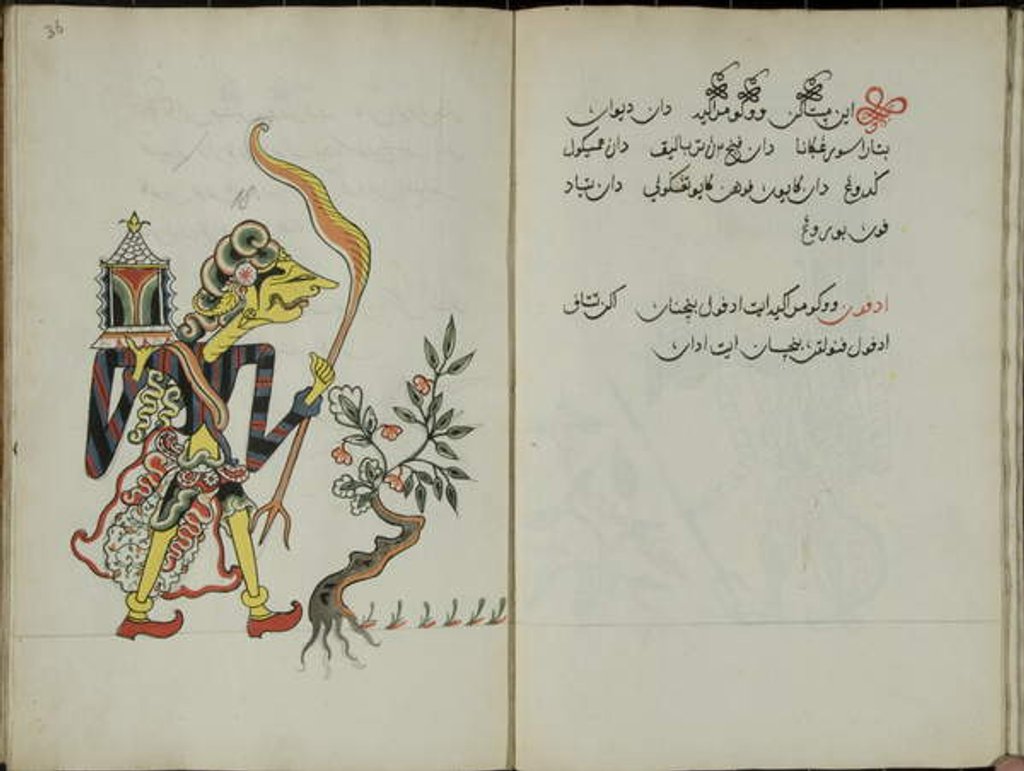 36
اين ووكو مراكيه دان ديوان
بتار اسورغكانا دان ترباليق دان مميكول
كدوغ دان كايون فوهن كايو تغكولي دان تياد
فون بوروغ
ادفون ووكو مراكيه ايت ادفول بنچنان اكن تتاف
ادفول فنولقن بنچان ايت ادان